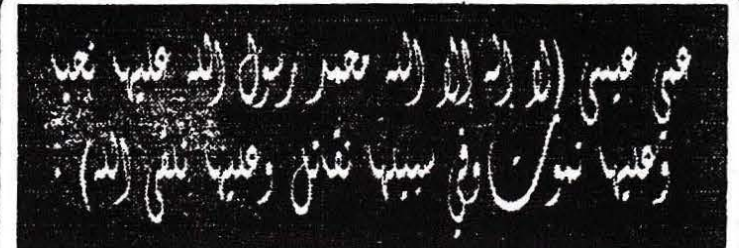 لا إله إلا الله محمد رسول الله عليها نحيا
وعليها نموت وفي سبيلها نقاتل وعليها نلقى الله